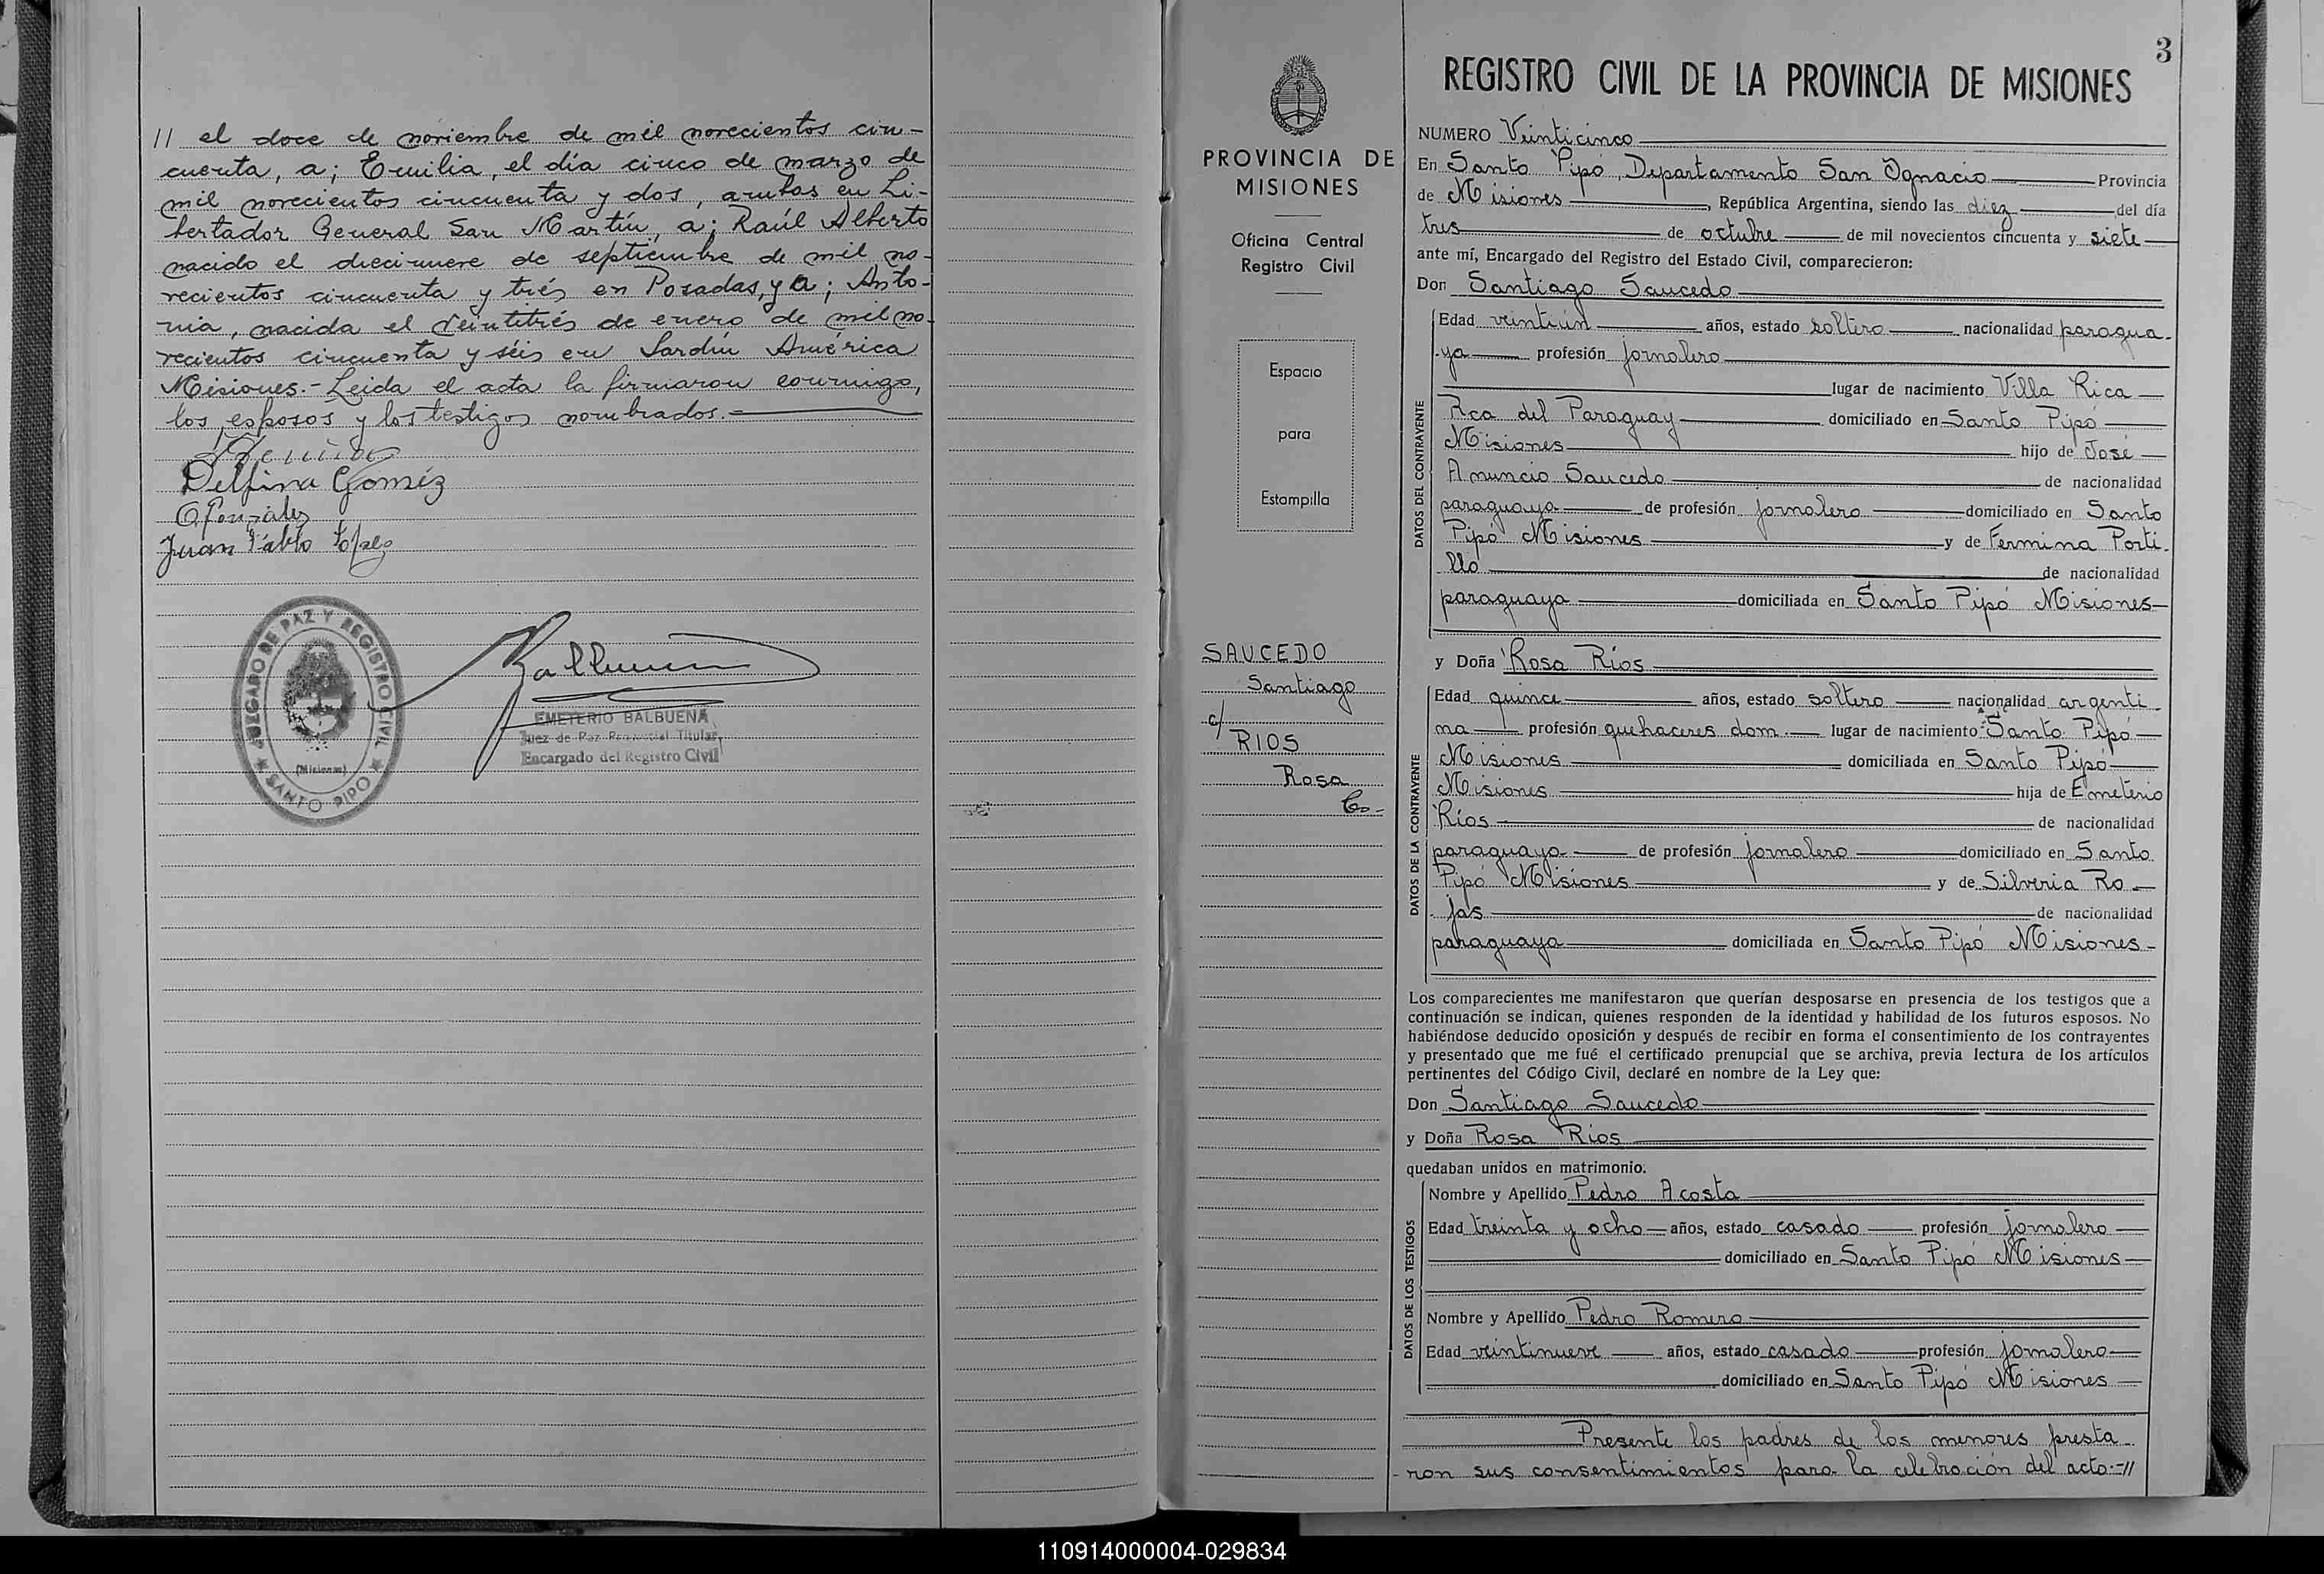 // el doce de noviembre de mil novecientos cin-
cuenta, a; Emilia, el día cinco de marzo de
mil novecientos cincuenta y dos, ambas en Li-
bertador General San Martín, a; Raúl Alberto
nacido el diecinueve de septiembre de mil no-
vecientos cincuenta y trés en Posadas, y a; Anto-
nia, nacida el veintitrés de enero de mil no-
vecientos cincuenta y séis en Jardín América
Misiones.- Leida el acta la firmaron conmigo,
los esposos y los testigos nombrados.-
Delfina Goméz
Juan Pablo López
JUZGADO DE PAZ Y REGISTRO CIVIL
(Misiones)
SANTO PIPO
Balbuena
EMETERIO BALBUENA
Juez de Paz Provincial Titular
Encargado del Registro Civil
3
PROVINCIA DE
MISIONES
Oficina Central
Registro Civil
Espacio
para
Estampilla
SAUCEDO
Santiago
c/
RIOS
Rosa
REGISTRO CIVIL DE LA PROVINCIA DE MISIONES
NUMERO Veinticinco
En Santo Pipó, Departamento San Ignacio Provincia
de Misiones, República Argentina, siendo las diez del día
tres de octubre de mil novecientos cincuenta y siete
ante mí, Encargado del Registro del Estado Civil, comparecieron:
Don Santiago Saucedo
DATOS DEL CONTRAYENTE
Edad veintiún años, estado soltero nacionalidad paragua-
ya profesión jornalero
lugar de nacimiento Villa Rica
Rca del Paraguay domiciliado en Santo Pipó
Misiones hijo de José
Anuncio Saucedo de nacionalidad
paraguaya de profesión jornalero domiciliado en Santo
Pipó Misiones y de Fermina Porti-
llo de nacionalidad
paraguaya domiciliada en Santo Pipó Misiones
y Doña Rosa Ríos
DATOS DE LA CONTRAYENTE
Edad quince años, estado soltera nacionalidad argenti-
na profesión quehaceres dom. lugar de nacimiento Santo Pipó
Misiones domiciliada en Santo Pipó
Misiones hija de Emeterio
Ríos de nacionalidad
paraguaya de profesión jornalero domiciliado en Santo
Pipó Misiones y de Silveria Ro-
jas de nacionalidad
paraguaya domiciliada en Santo Pipó Misiones
Los comparecientes me manifestaron que querían desposarse en presencia de los testigos que a
continuación se indican, quienes responden de la identidad y habilidad de los futuros esposos. No
habiéndose deducido oposición y después de recibir en forma el consentimiento de los contrayentes
y presentado que me fué el certificado prenupcial que se archiva, previa lectura de los artículos
pertinentes del Código Civil, declaré en nombre de la Ley que:
Don Santiago Saucedo
y Doña Rosa Ríos
quedaban unidos en matrimonio.
DATOS DE LOS TESTIGOS
Nombre y Apellido Pedro Acosta
Edad treinta y ocho años, estado casado profesión jornalero
domiciliado en Santo Pipó Misiones
Nombre y Apellido Pedro Romero
Edad veintinueve años, estado casado profesión jornalero
domiciliado en Santo Pipó Misiones
Presente los padres de los menores presta-
ron sus consentimientos para la celebración del acto.-//
110914000004-029834